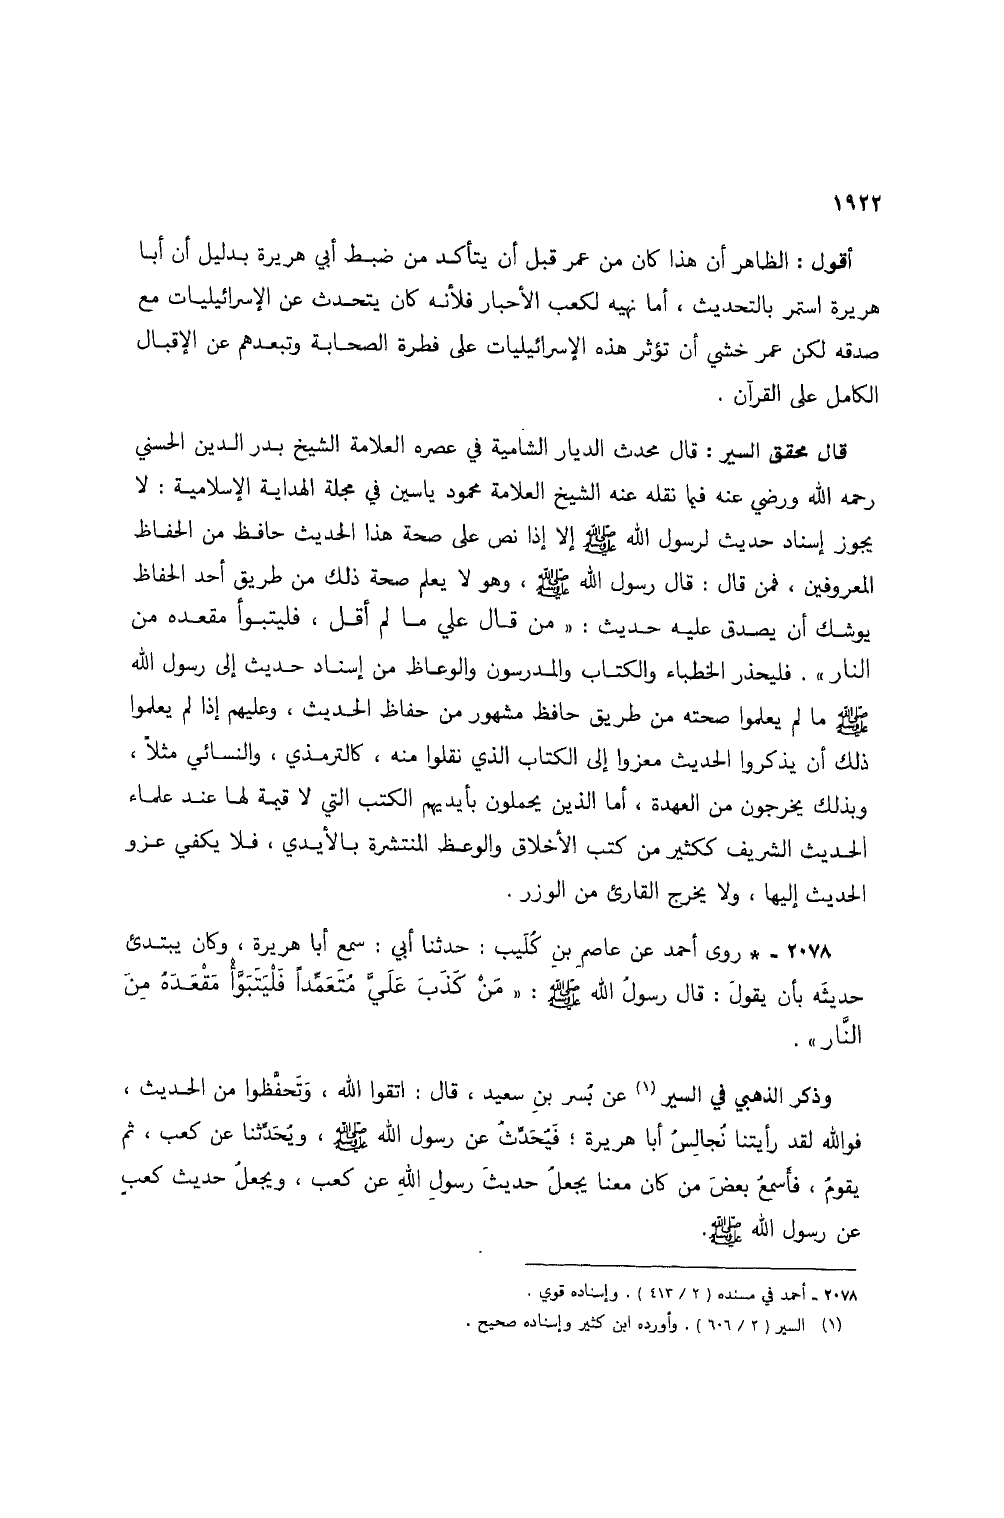 ١٩٢٢
أقول : الظاهر أن هذا كان من عمر قبل أن يتأكد من ضبط أبي هريرة بدليل أن أبا
هريرة استمر بالتحديث ، أما نهيه لكعب الأحبار فلأنه كان يتحدث عن الإسرائيليات مع
صدقه لكن عمر خشي أن تؤثر هذه الإسرائيليات على فطرة الصحابة وتبعدهم عن الإقبال
الكامل على القرآن .
قال محقق السير : قال محدث الديار الشامية في عصره العلامة الشيخ بدر الدين الحسني
رحمه الله ورضي عنه فيما نقله عنه الشيخ العلامة محمود ياسين في مجلة الهداية الإسلامية : لا
يجوز إسناد حديث لرسول الله ﷺ إلا إذا نص على صحة هذا الحديث حافظ من الحفاظ
المعروفين ، فمن قال : قال رسول الله ﷺ ، وهو لا يعلم صحة ذلك من طريق أحد الحفاظ
يوشك أن يصدق عليه حديث : « من قال علي ما لم أقل ، فليتبوأ مقعده من
النار » . فليحذر الخطباء والكتاب والمدرسون والوعاظ من إسناد حديث إلى رسول الله
ﷺ ما لم يعلموا صحته من طريق حافظ مشهور من حفاظ الحديث ، وعليهم إذا لم يعلموا
ذلك أن يذكروا الحديث معزوا إلى الكتاب الذي نقلوا منه ، كالترمذي ، والنسائي مثلاً ،
وبذلك يخرجون من العهدة ، أما الذين يحملون بأيديهم الكتب التي لا قيمة لها عند علماء
الحديث الشريف ككثير من كتب الأخلاق والوعظ المنتشرة بالأيدي ، فلا يكفي عزو
الحديث إليها ، ولا يخرج القارئ من الوزر .
٢٠٧٨ ـ * روى أحمد عن عاصمِ بنِ كُلَيب : حدثنا أبي : سمع أبا هريرة ، وكان يبتدئ
حديثَه بأن يقولَ : قال رسولُ الله ﷺ : « مَنْ كَذَبَ عَلَيَّ مُتَعَمِّداً فَلْيَتَبَوَّأْ مَقْعَدَهُ مِنَ
النَّار » .
وذكر الذهبي في السير (١) عن بُسر بنِ سعيد ، قال : اتقوا الله ، وَتَحفَّظوا من الحديث ،
فوالله لقد رأيتنا نُجالِسُ أبا هريرة ؛ فَيُحَدِّثُ عن رسول الله ﷺ ، ويُحَدِّثنا عن كعب ، ثم
يقومُ ، فأَسمعُ بعضَ من كان معنا يجعلُ حديثَ رسولِ اللهِ عن كعب ، ويجعلُ حديث كعبٍ
عن رسول الله ﷺ.
٢٠٧٨ ـ أحمد في مسنده ( ٢ / ٤١٣ ) . وإسناده قوي .
(١) السير ( ٢ / ٦٠٦ ) . وأورده ابن كثير وإسناده صحيح .